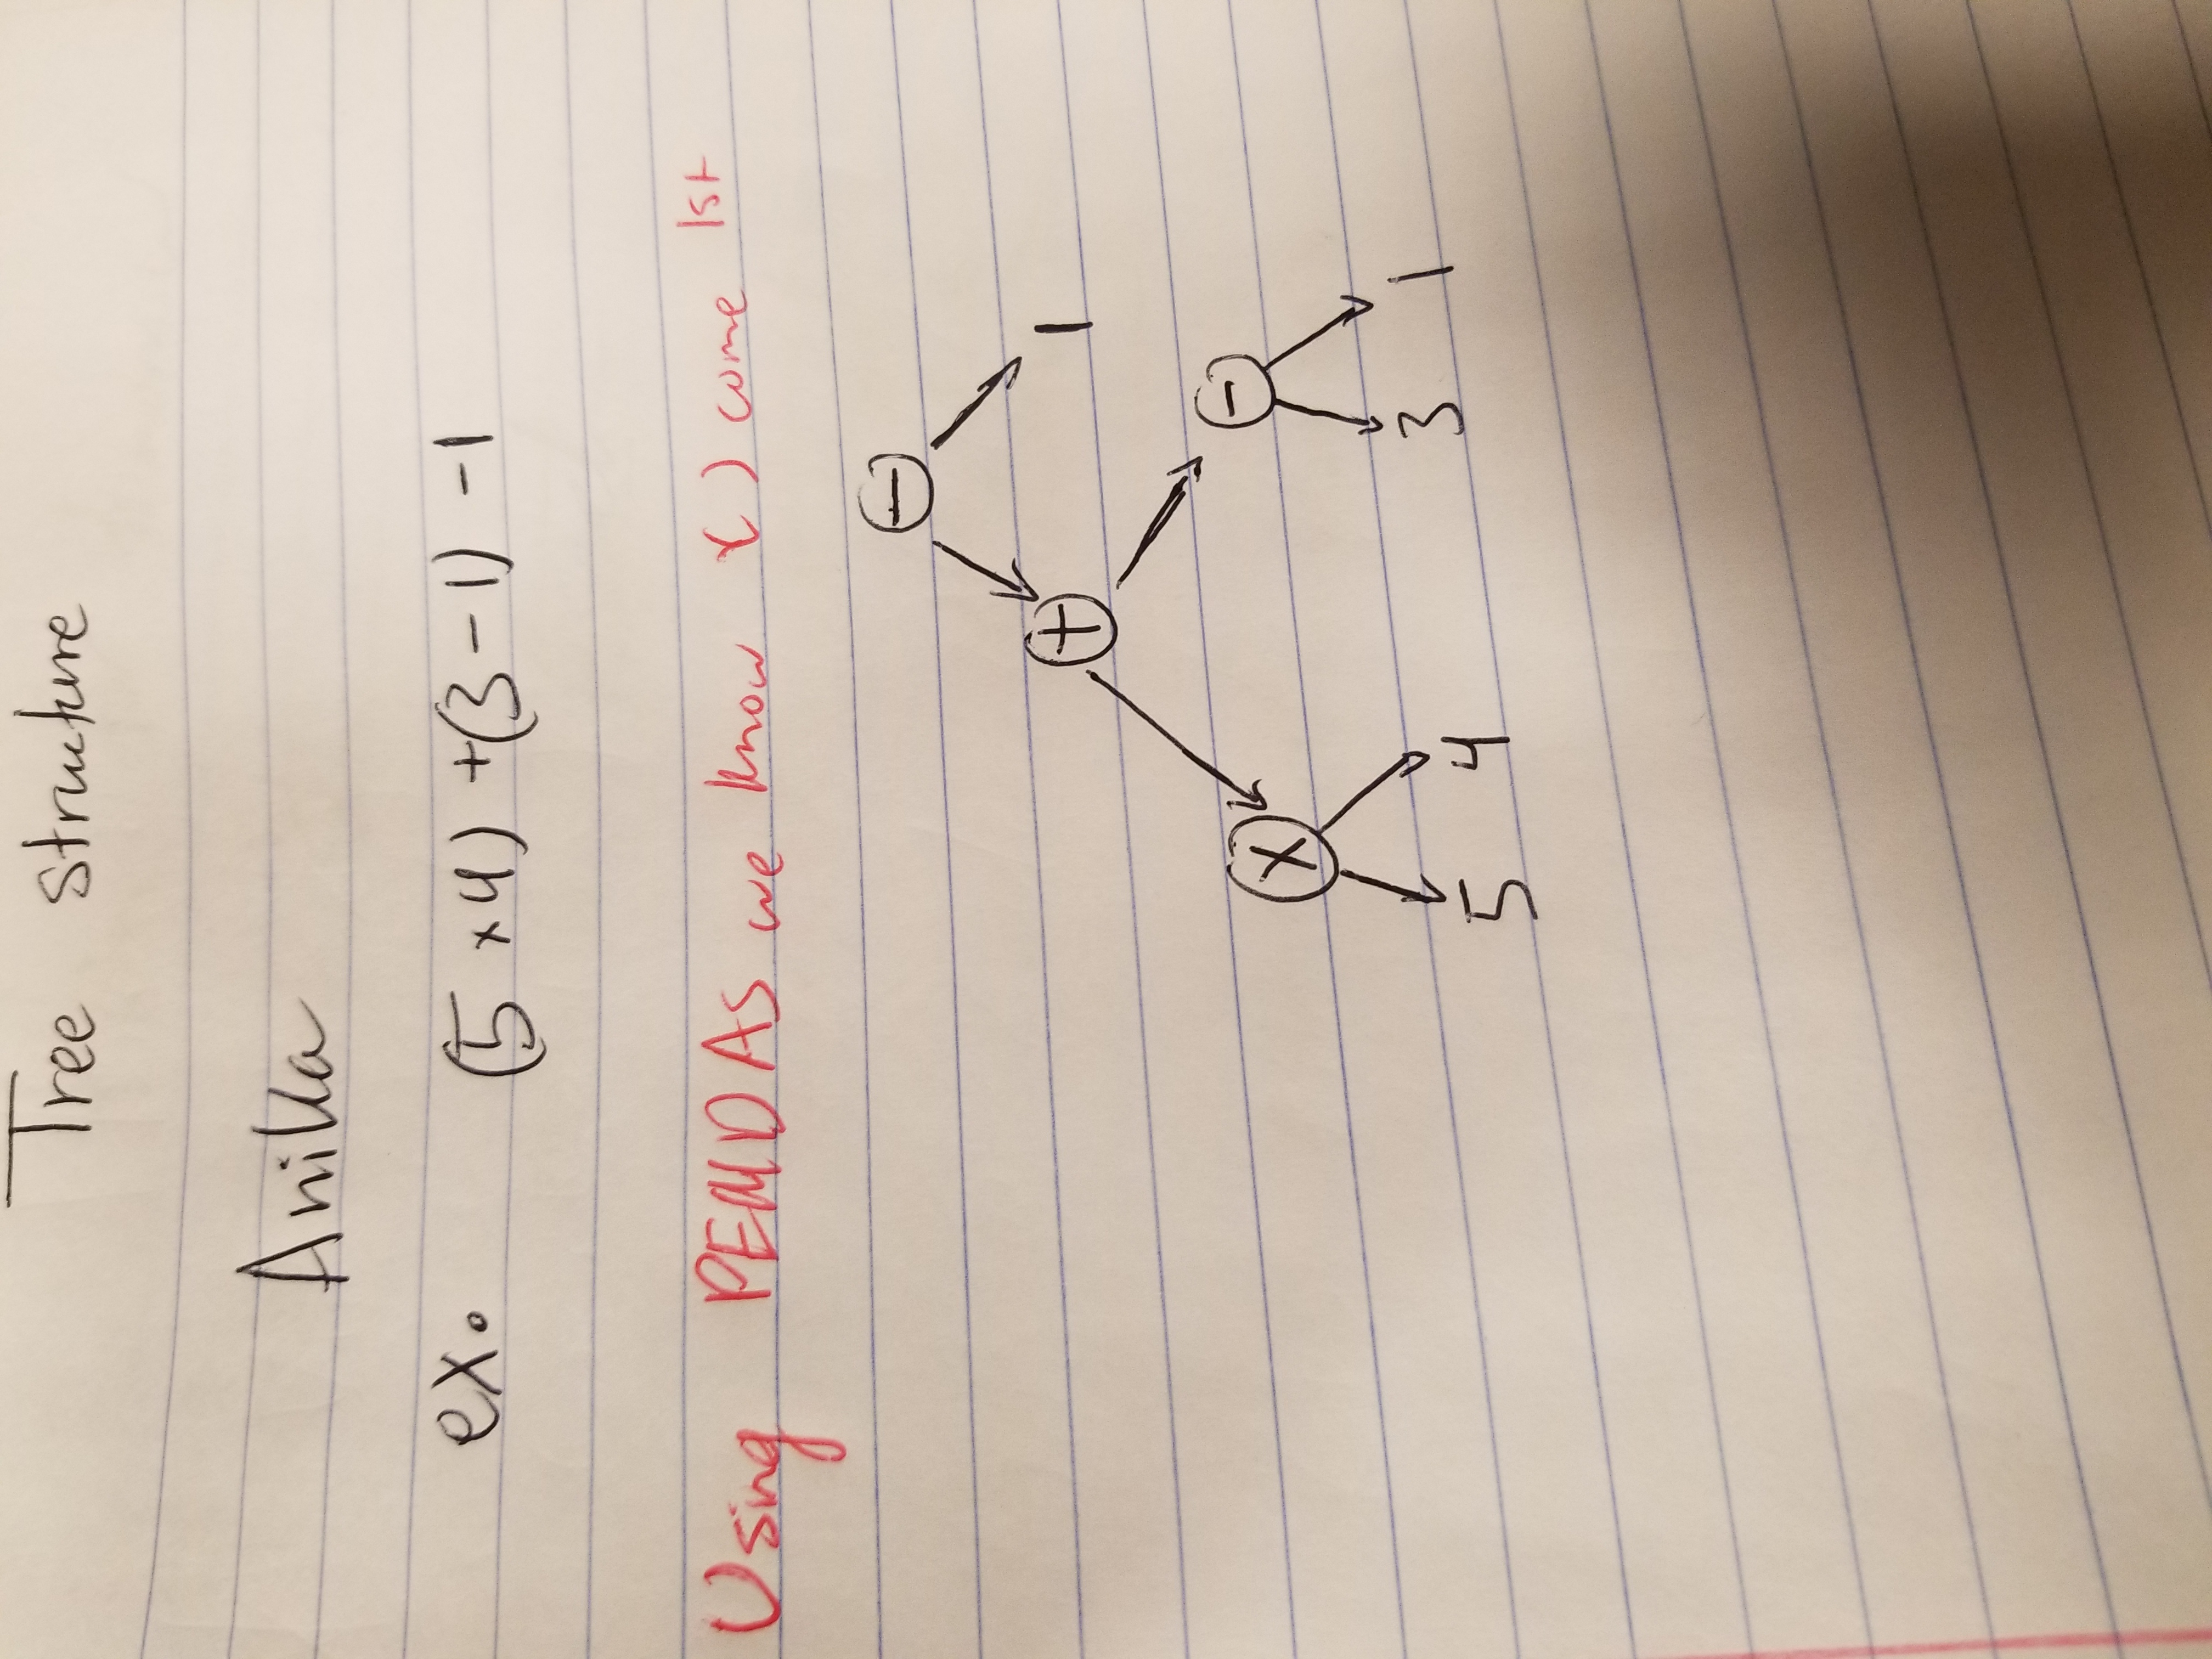 Tree structure
Anika
ex. (5 × 4) + (3 - 1) - 1
Using PEMDAS we know ( ) come 1st
−
+ 1
× −
5 4 3 1